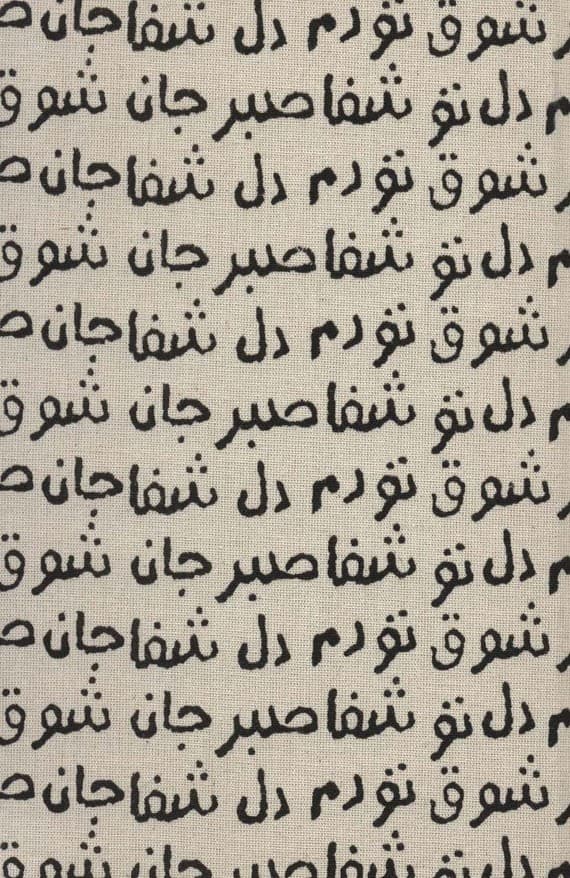 شوق تو دم دل شفا جان
دل تو شفا صبر جان شوق
شوق تو دم دل شفا جان
دل تو شفا صبر جان شوق
شوق تو دم دل شفا جان
دل تو شفا صبر جان شوق
شوق تو دم دل شفا جان
دل تو شفا صبر جان شوق
شوق تو دم دل شفا جان
دل تو شفا صبر جان شوق
شوق تو دم دل شفا جان
دل تو شفا صبر جان شوق